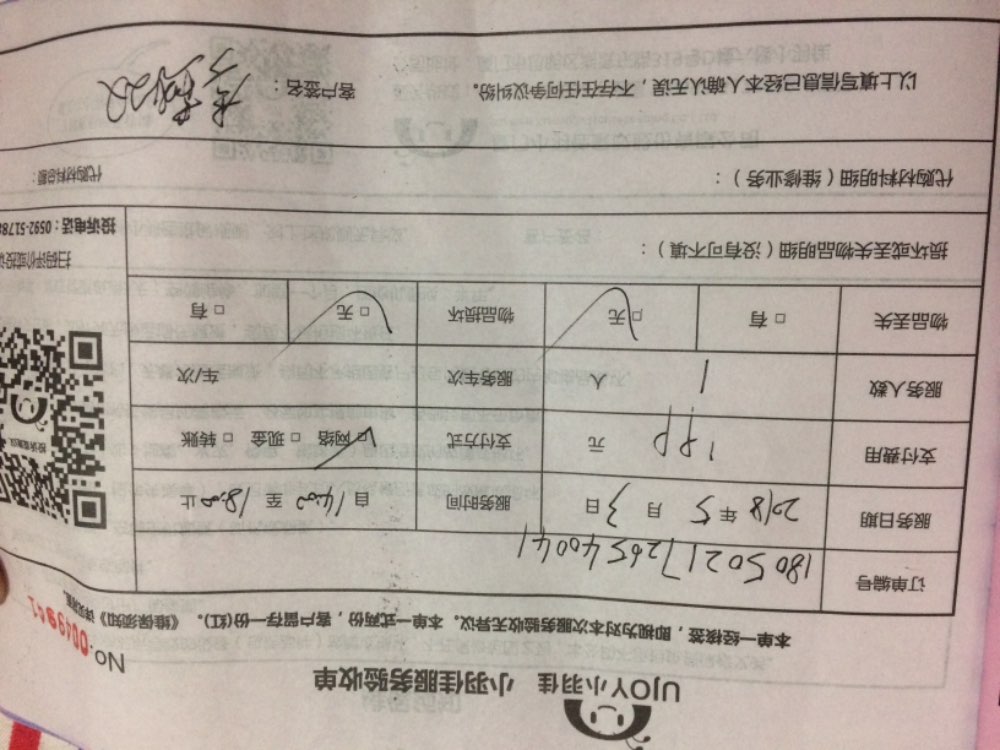 UJOY小羽佳 小羽佳服务验收单
No.
本单一经核签,即视为对本次服务验收无异议。本单一式两份,客户留存一份(红)。《维保须知》详见背面。
订单编号 18050217265400041
服务日期 2018 年 5 月 3 日 服务时间 自 14:00 至 18:00 止
支付费用 199 元 支付方式 □网络 □现金 □转账
服务人数 1 人 服务车次 车次
物品丢失 □有 □无 物品损坏 □无 □有
损坏或丢失物品明细(没有可不填):
扫码评价或投诉
投诉电话:0592-5178
代购材料明细(维修业务): 代购材料总额:
以上填写信息已经本人确认无误,不存在任何争议纠纷。 客户签名: